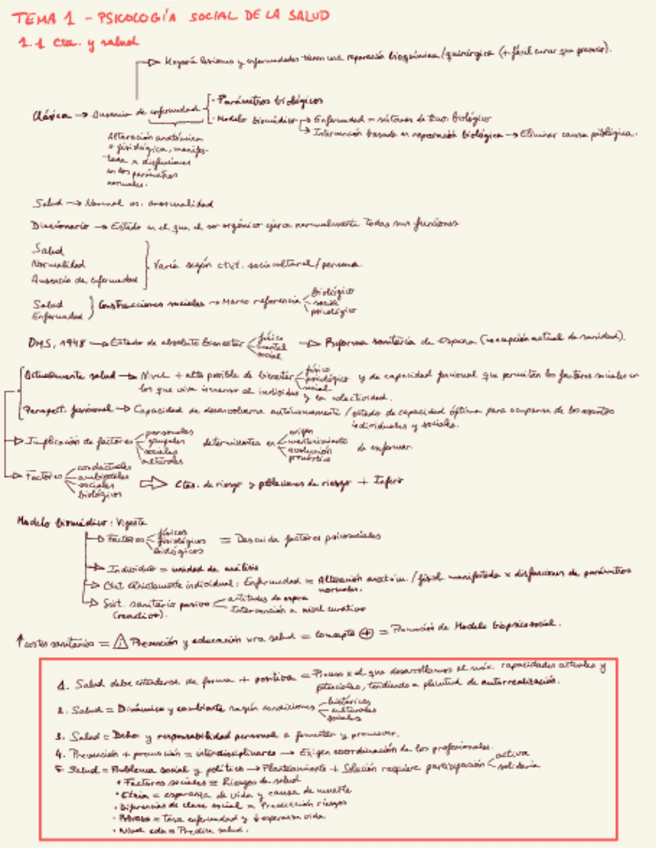 TEMA 1 - PSICOLOGÍA SOCIAL DE LA SALUD
1.1 Cta. y salud
Mayoría lesiones y enfermedades tienen una reparación bioquímica/quirúrgica (+ fácil curar que prevenir).
Clásica → Ausencia de enfermedad
· Parámetros biológicos
· Modelo biomédico → Enfermedad = síntomas de tipo biológico
→ Intervención basada en reparación biológica → Eliminar causa patológica.
Alteración anatómica
o fisiológica, manifes-
tada x disfunciones
en los parámetros
normales.
Salud → Normal vs. anormalidad
Diccionario → Estado en el que el ser orgánico ejerce normalmente todas sus funciones
Salud
Normalidad
Ausencia de enfermedad
Varía según ctxt. sociocultural/persona
Salud
Enfermedad
Construcciones sociales → Marco referencia
biológico
social
psicológico
OMS, 1948 → Estado de absoluto bienestar
físico
mental
social
→ Reforma sanitaria de España (concepción actual de sanidad).
Actualmente salud → Nivel + alto posible de bienestar
físico
psicológico
social
y de capacidad funcional que permiten los factores sociales en
los que vive inmerso el individuo y la colectividad.
Perspect. funcional → Capacidad de desenvolverse autónomamente / estado de capacidad óptima para ocuparse de los asuntos
individuales y sociales.
→ Implicación de factores
personales
grupales
sociales
culturales
determinantes en
origen
mantenimiento
evolución
pronóstico
de enfermar.
→ Factores
conductuales
ambientales
sociales
biológicos
⇒ Ctas. de riesgo y poblaciones de riesgo +
Modelo biomédico: Vigente
→ Factores
físicos
fisiológicos
biológicos
= Descuida factores psicosociales
→ Individuo = unidad de análisis
→ Ctxt estrictamente individual: Enfermedad = Alteración anatóm./fisiol. manifestada x disfunciones de parámetros
normales.
→ Sist. sanitario pasivo
(reactivo).
actitudes de espera
Intervención a nivel curativo
↑ costes sanitarios = ⚠ Prevención y educación xra salud = concepto ⊕ = Promoción de Modelo biopsicosocial.
1. Salud debe entenderse de forma + positiva = Proceso x el que desarrollamos al máx. capacidades actuales y
potenciales, tendiendo a plenitud de autorrealización.
2. Salud = Dinámico y cambiante según condiciones
históricas
culturales
sociales
3. Salud = Deber y responsabilidad personal a fomentar y promover.
4. Prevención + promoción = interdisciplinares → Exigen coordinación de los profesionales.
5. Salud = Problema social y político → Planteamiento + Solución requiere participación
activa
solidaria
• Factores sociales = Riesgos de salud
• Etnia = esperanza de vida y causa de muerte
• Diferencias de clase social = Predicción riesgos
• Pobreza = Tasa enfermedad y ↓ esperanza vida
• Nivel edu = Predice salud.